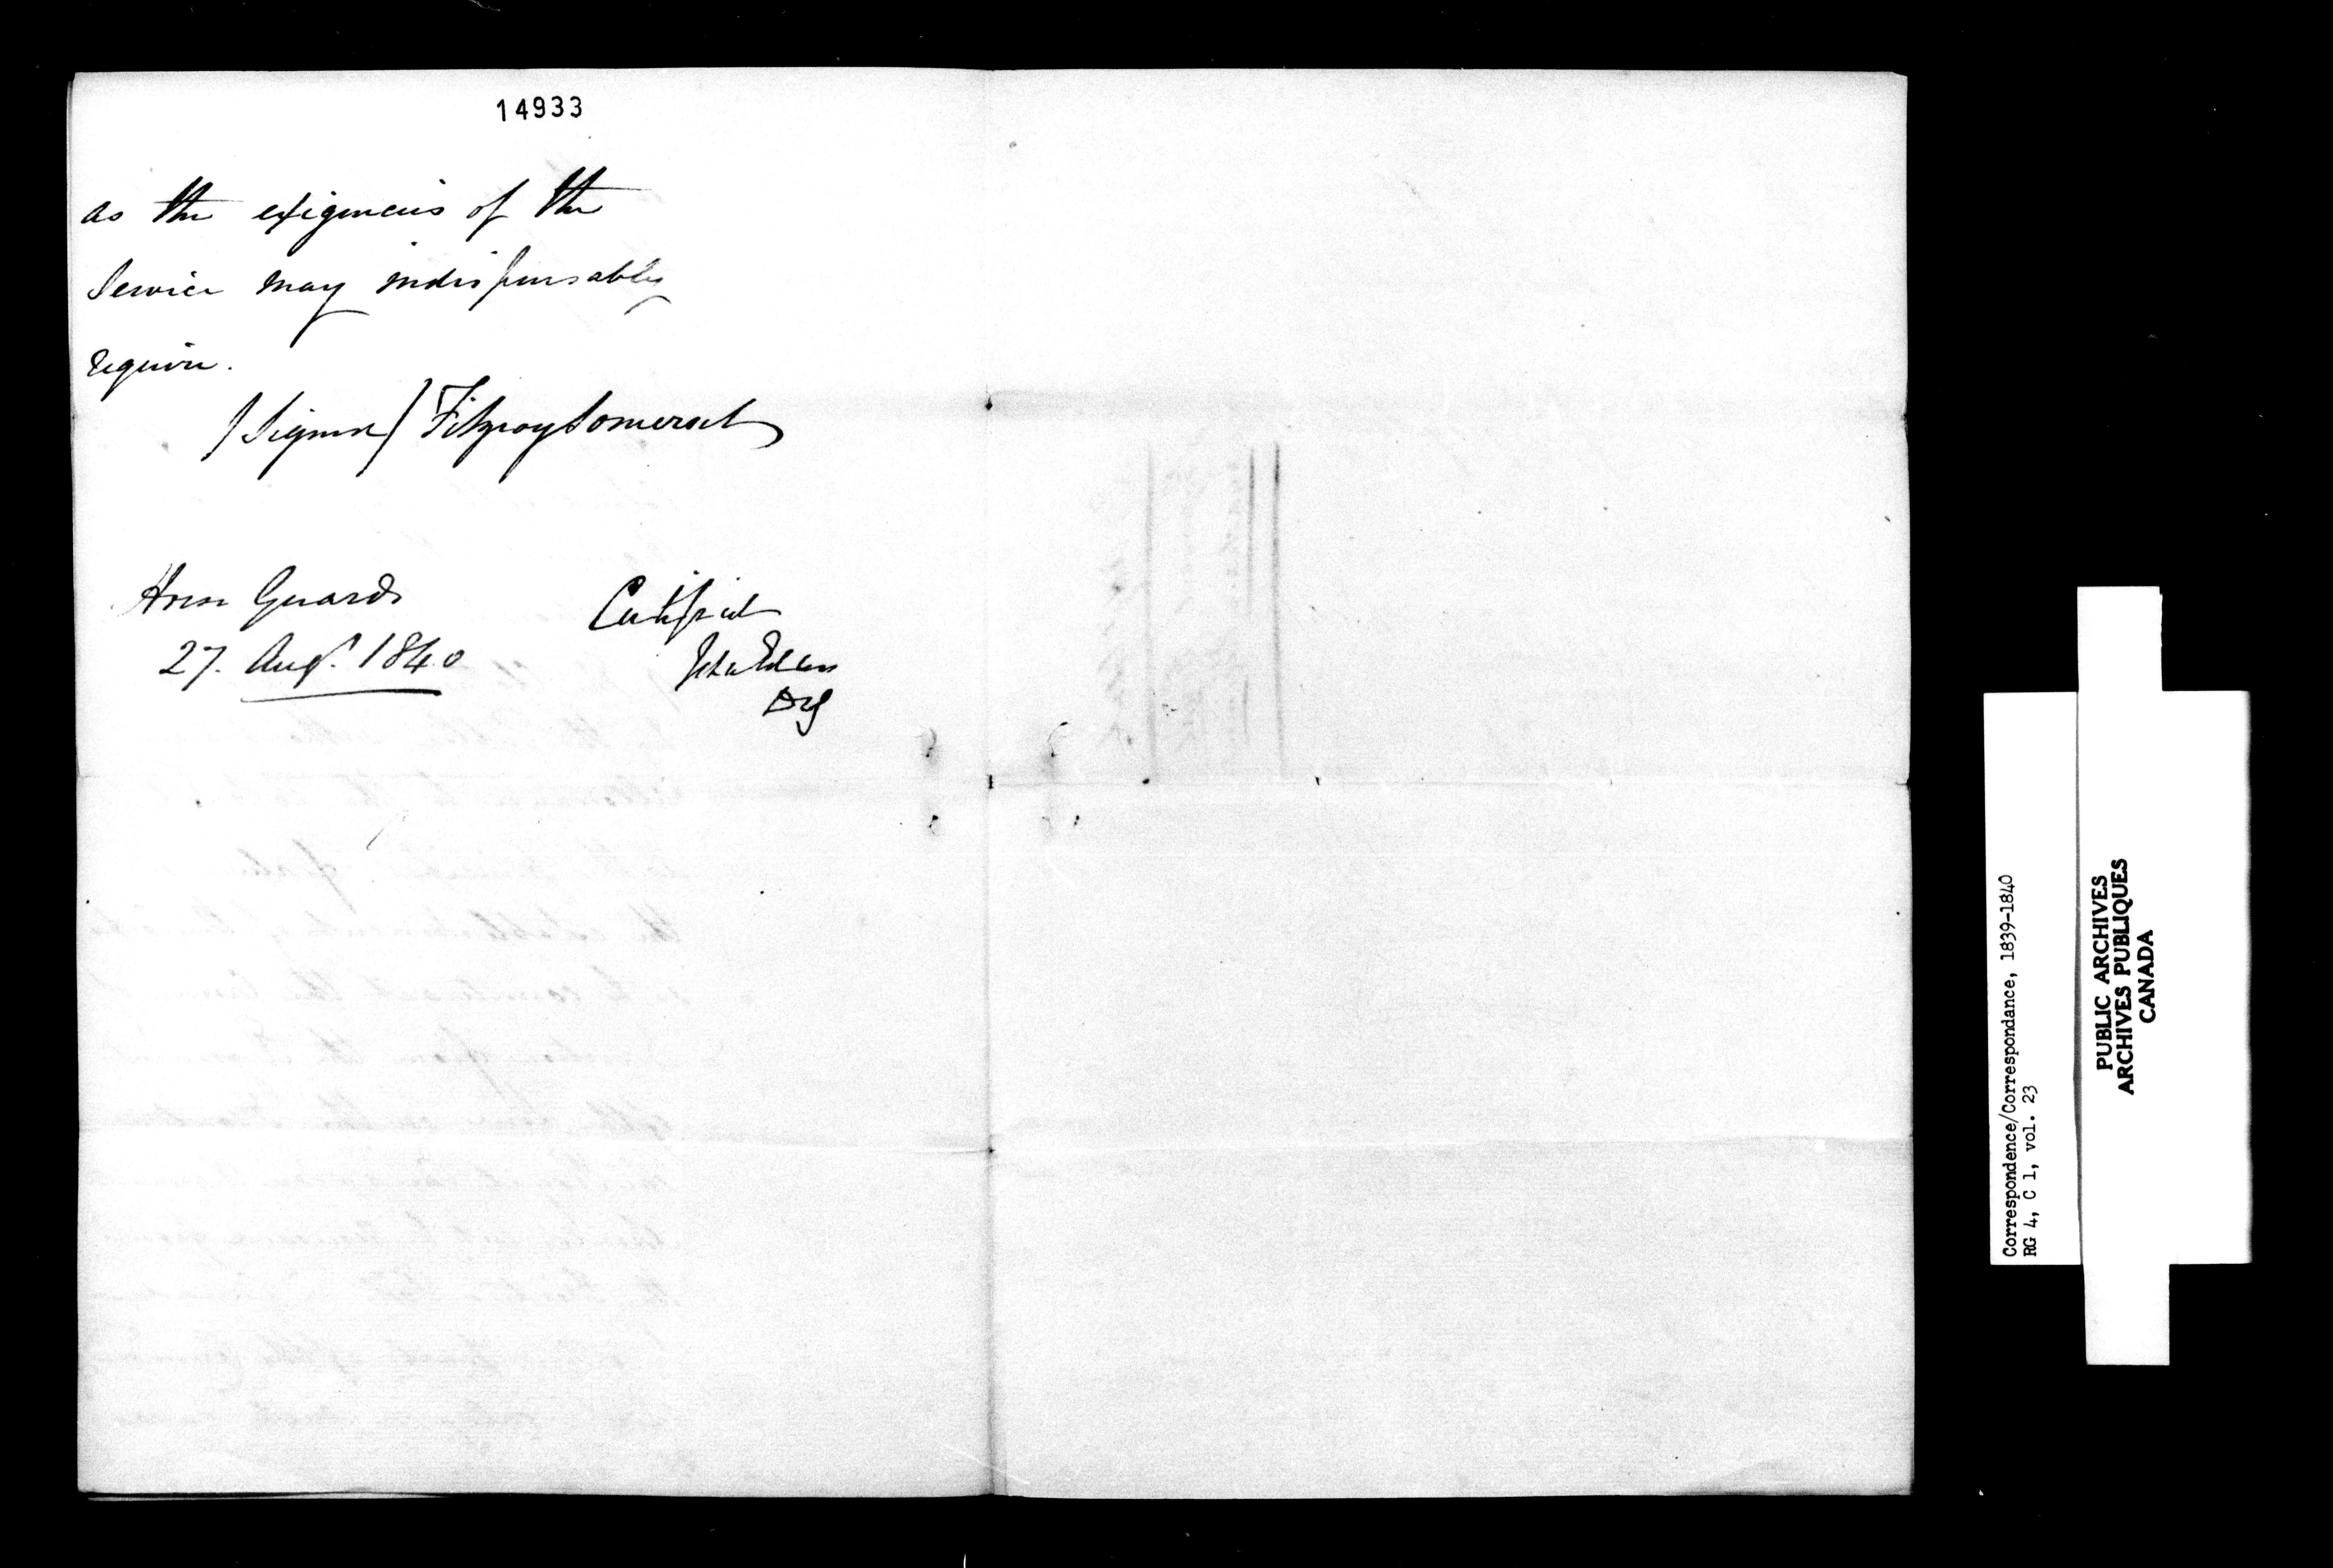 14933
as the exigencies of the
Service may indispensably
require.
/Signed/ Fitzroy Somerset
Horse Guards
27. Augt. 1840
Certified
John Eden
DAG
Correspondence/Correspondance, 1839-1840
RG 4, C 1, vol. 23
PUBLIC ARCHIVES
ARCHIVES PUBLIQUES
CANADA